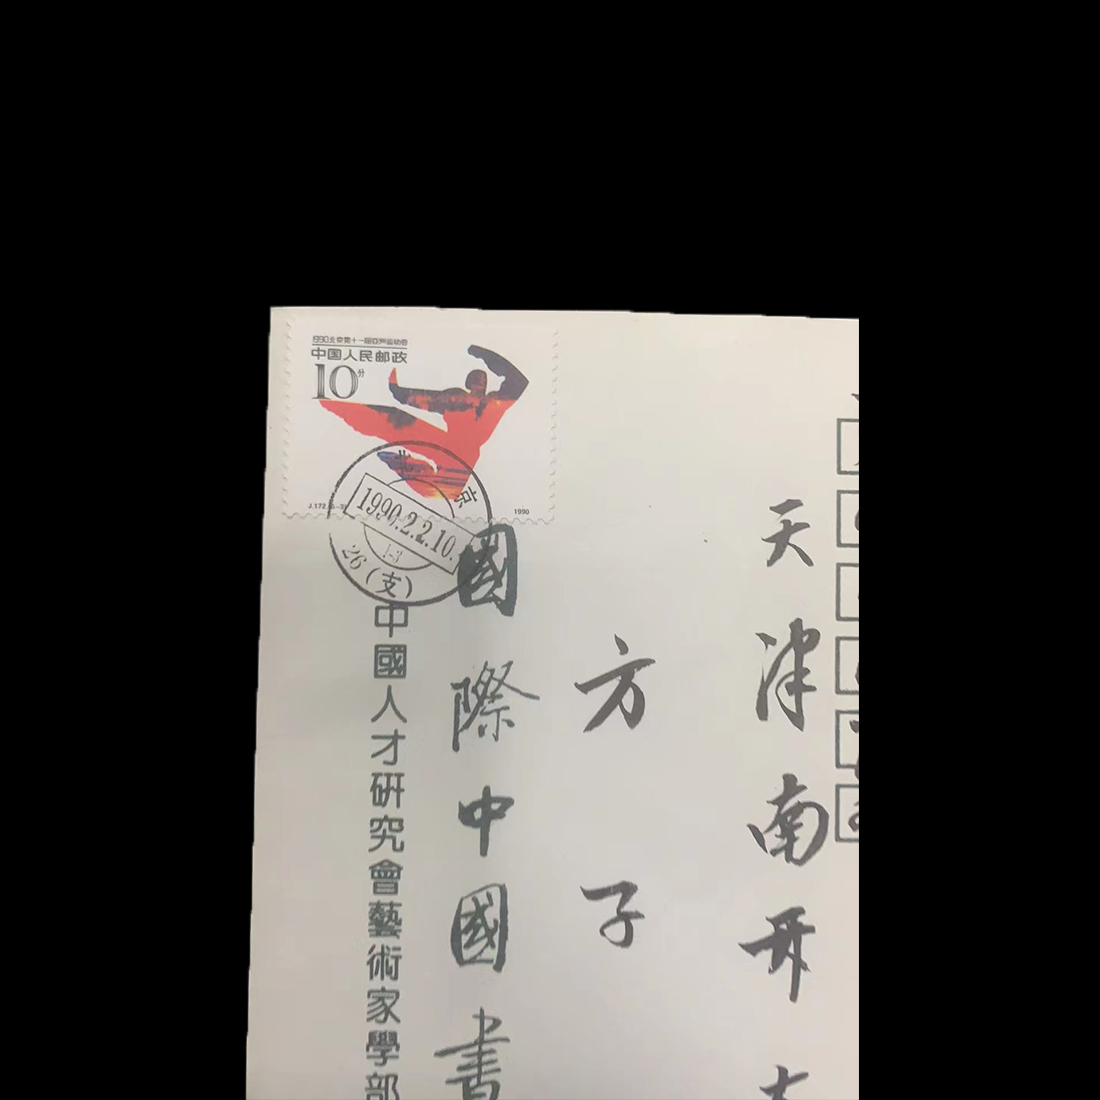 1990北京第十一届亚洲运动会
中国人民邮政
10分
J.172.
1990
北京
1990.2.2.10.
1-3
26(支)
天津南开
方子
國際中國書
中國人才研究會藝術家學部